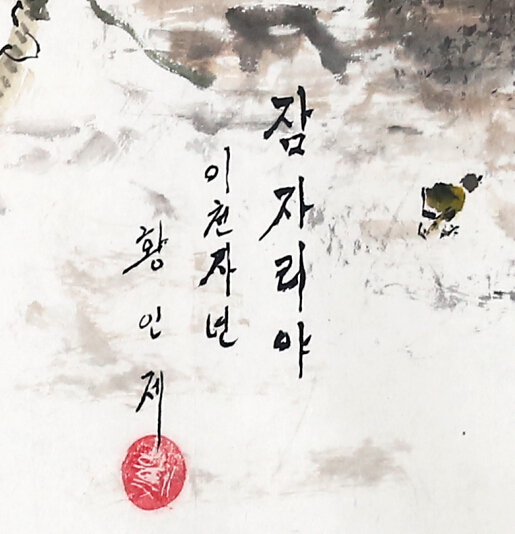 잠자리야
이천자년
황인제